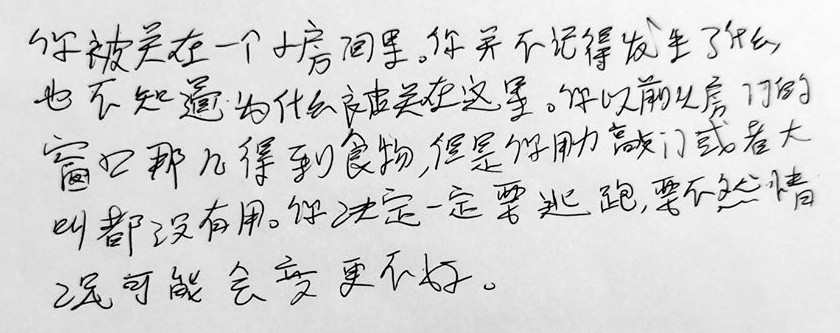 你被关在一个小房间里。你并不记得发生了什么
也不知道为什么被关在这里。你以前从房门的
窗口那儿得到食物,但是你用力敲门或者大
叫都没有用。你决定一定要逃跑,要不然情
况可能会变更不好。